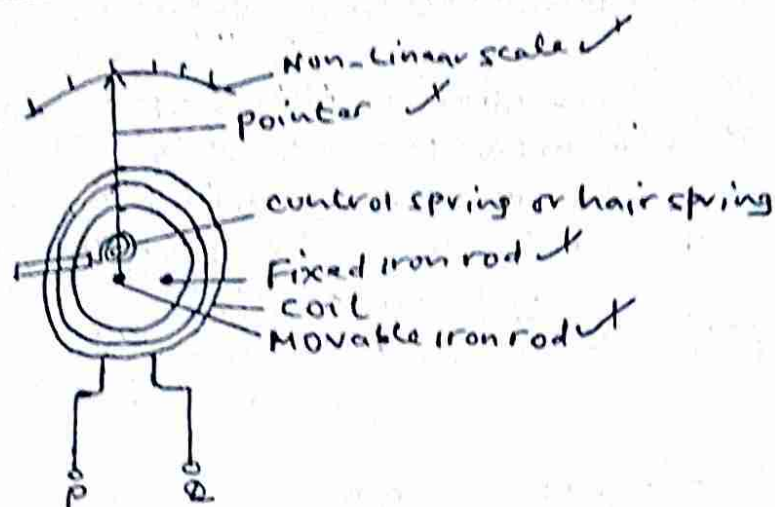 Non-Linear scale
pointer
control spring or hair spring
Fixed iron rod
coil
Movable iron rod
P
Q